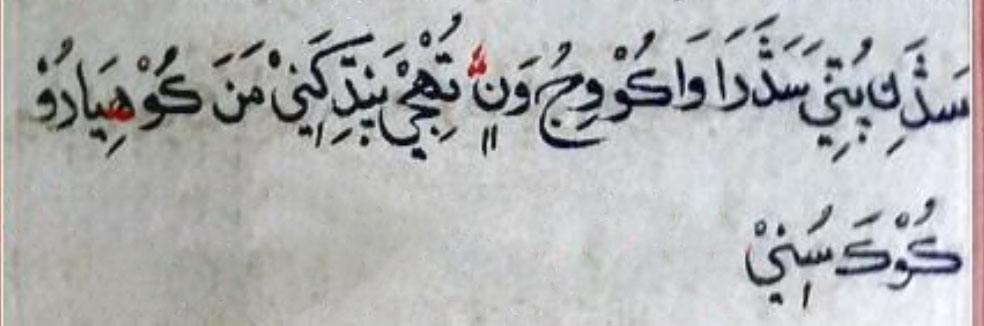 سَدَّنِ بُتِنِي سَدَّرَا وَاكُوْ وِجُ وَنٍّ تُهْجِيْ بَنِدِّكَنِيْ مَنَ كُوْ هِيَارُوْ
كُوْكَ سُنِيْ